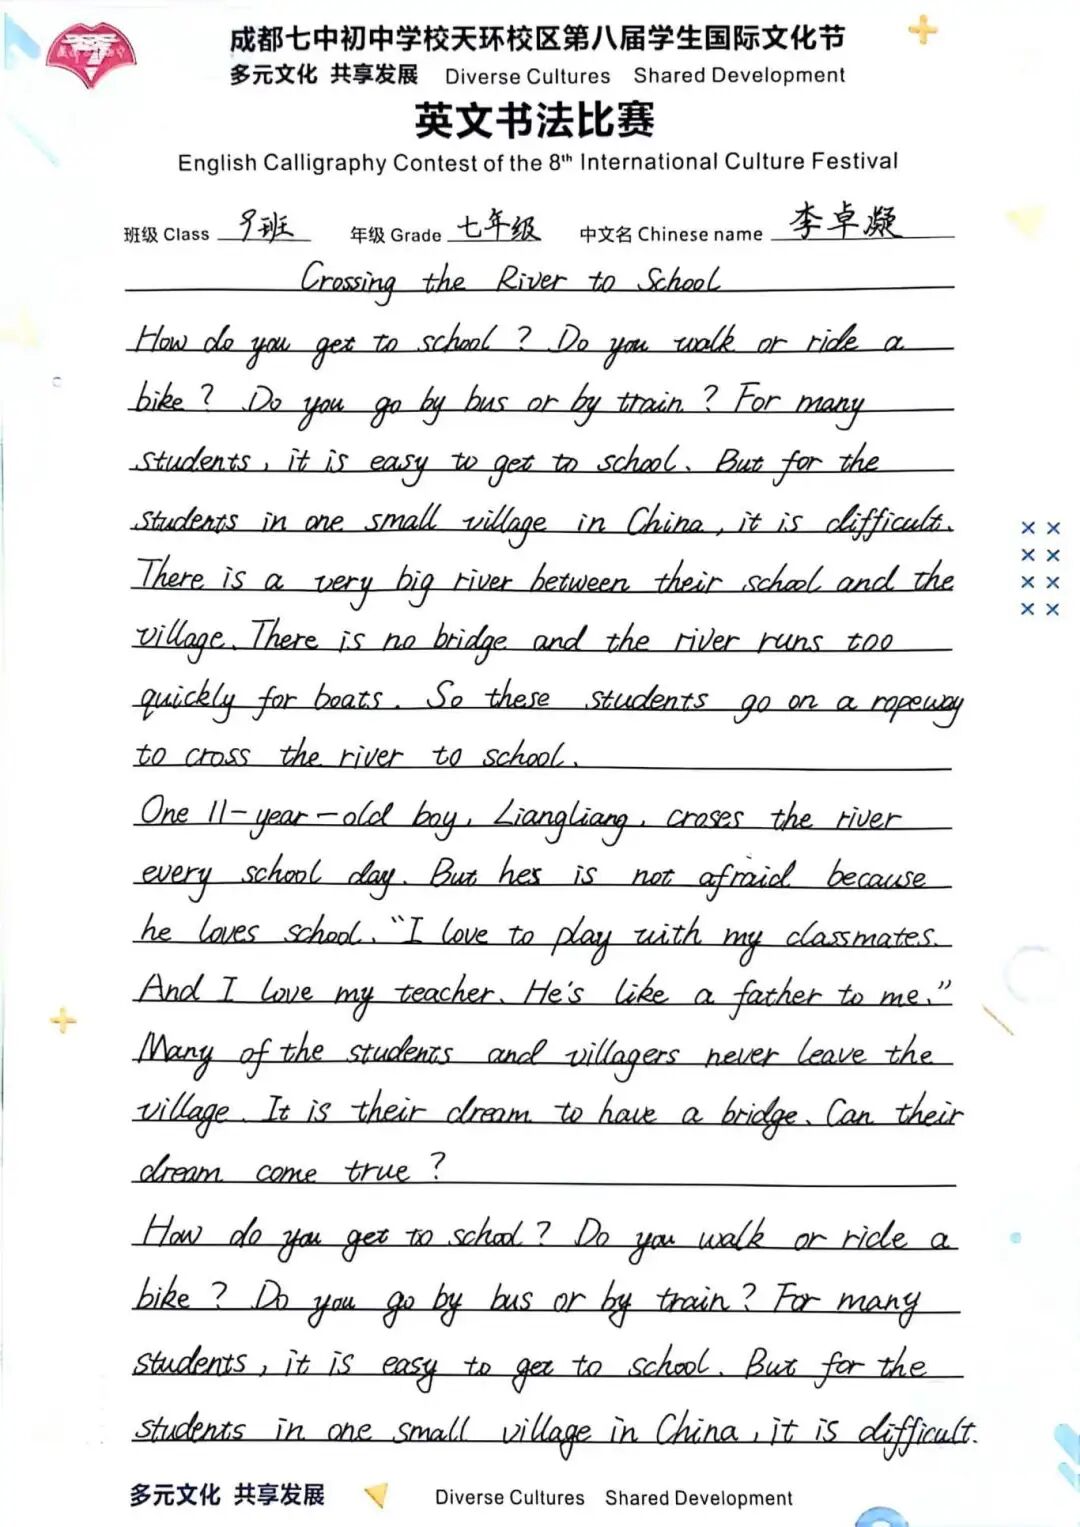 成都七中初中学校天环校区第八届学生国际文化节
多元文化 共享发展 Diverse Cultures Shared Development
英文书法比赛
English Calligraphy Contest of the 8th International Culture Festival
班级 Class 9班 年级 Grade 七年级 中文名 Chinese name 李卓凝
Crossing the River to School
How do you get to school? Do you walk or ride a
bike? Do you go by bus or by train? For many
students, it is easy to get to school. But for the
students in one small village in China, it is difficult.
There is a very big river between their school and the
village. There is no bridge and the river runs too
quickly for boats. So these students go on a ropeway
to cross the river to school.
One 11-year-old boy, Liangliang, croses the river
every school day. But hes is not afraid because
he loves school. "I love to play with my classmates.
And I love my teacher. He's like a father to me."
Many of the students and villagers never leave the
village. It is their dream to have a bridge. Can their
dream come true?
How do you get to school? Do you walk or ride a
bike? Do you go by bus or by train? For many
students, it is easy to get to school. But for the
students in one small village in China, it is difficult.
多元文化 共享发展 Diverse Cultures Shared Development